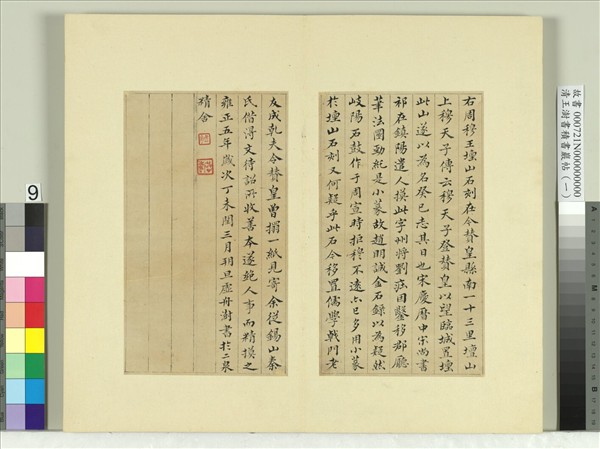 故書 000721N000000000
清王澍書積書巖帖(一)
右周穆王壇山石刻在今贊皇縣南一十三里壇山
上穆天子傳云穆天子登贊皇以望臨城置壇
此山遂以為名癸巳志其日也宋慶曆中宋尚書
祁在鎮陽遣人摸此字州將劉莊因鑿移郡廳
筆法圓勁純是小篆故趙明誠金石錄以為疑然
岐陽石鼓作于周宣時拒穆不遠亦已多用小篆
於壇山石刻又何疑乎此石今移置儒學戟門老
友成乾夫令贊皇曾搨一紙見寄余從錫山秦
氏借得文待詔所收善本遂絕人事而精摸之
雍正五年歲次丁未閏三月朔旦虛舟澍書於二泉
精舍
9